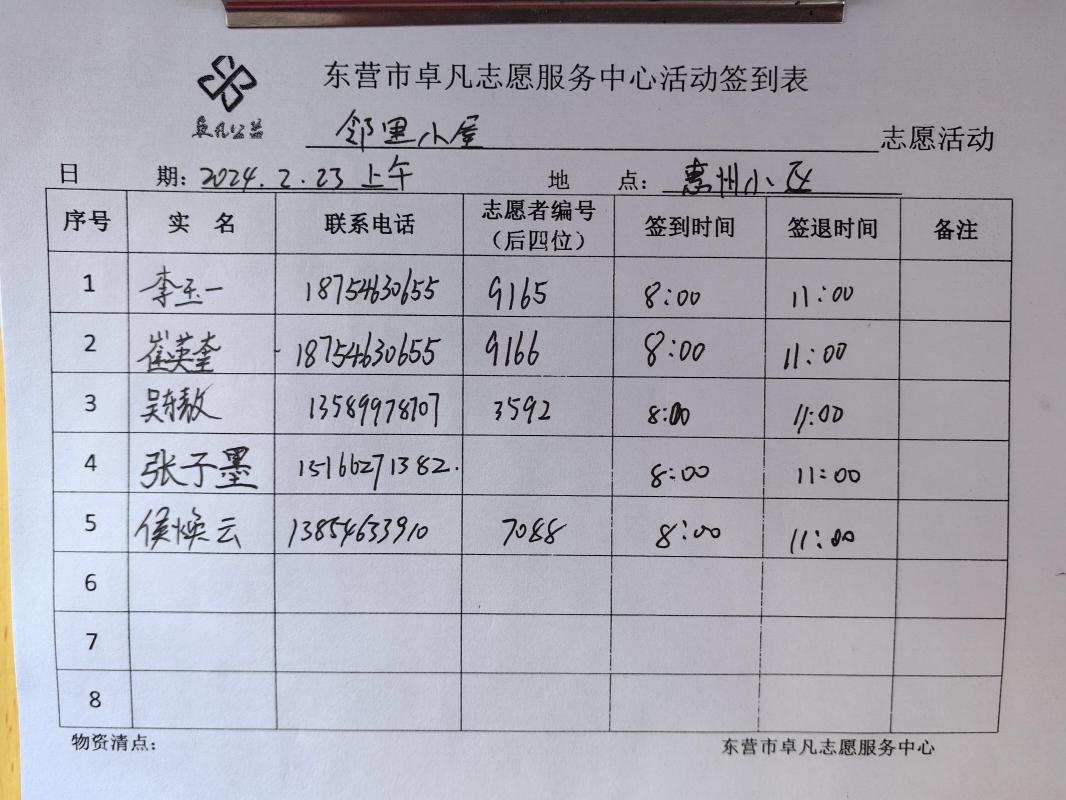 东营市卓凡志愿服务中心活动签到表
卓凡公益
邻里小屋 志愿活动
日 期：2024.2.23 上午 地 点：惠州小区
序号 实 名 联系电话 志愿者编号（后四位） 签到时间 签退时间 备注
1 李玉一 18754630655 9165 8:00 11:00
2 崔英奎 18754630655 9166 8:00 11:00
3 吴东敖 13589978707 3592 8:00 11:00
4 张子墨 15166271382. 8:00 11:00
5 侯焕云 13854633910 7088 8:00 11:00
6
7
8
物资清点： 东营市卓凡志愿服务中心